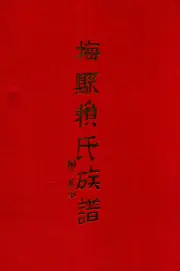 梅縣賴氏族譜